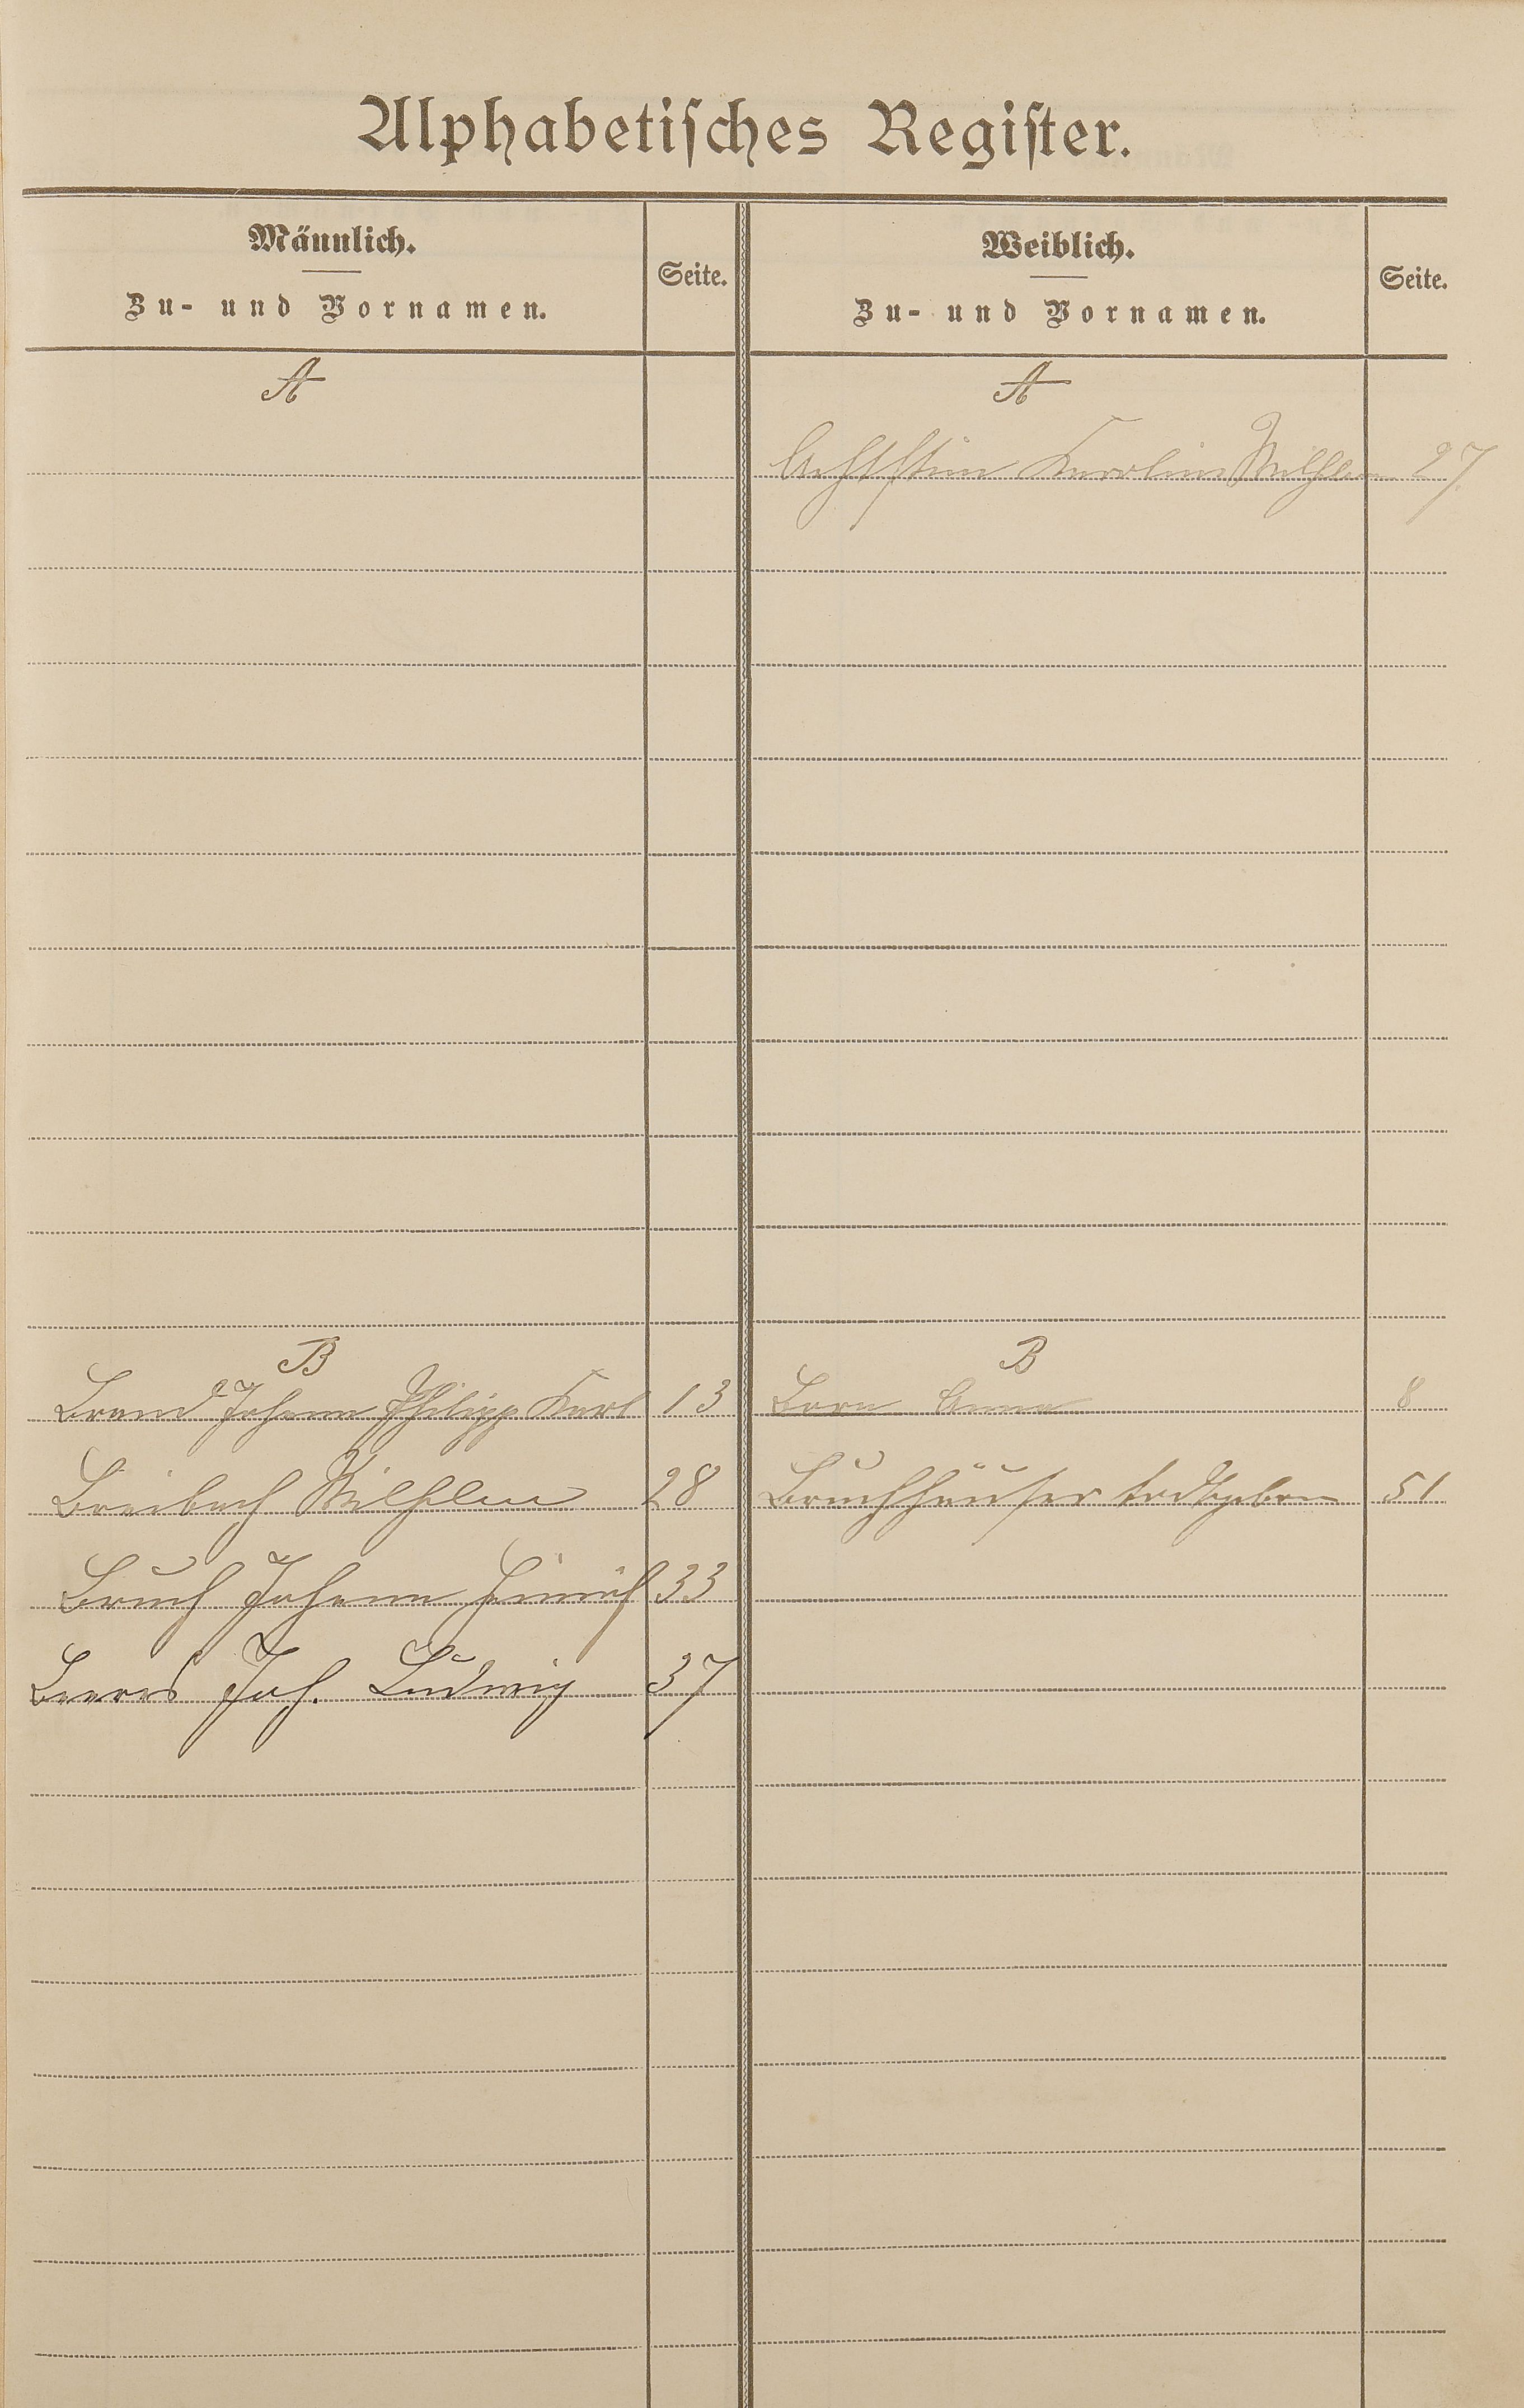 Alphabetisches Register.
Männlich.
Zu- und Vornamen.
Seite.
Weiblich.
Zu- und Vornamen.
Seite.
A
A
Karoline Wilhelm 27
B
B
Brand Johann Philipp Karl 13
Born Anna 8
Breibach Wilhelm 28
Bruchhäuser todtgeboren 51
Bruch Johann Heinrich 33
Joh. Ludwig 37